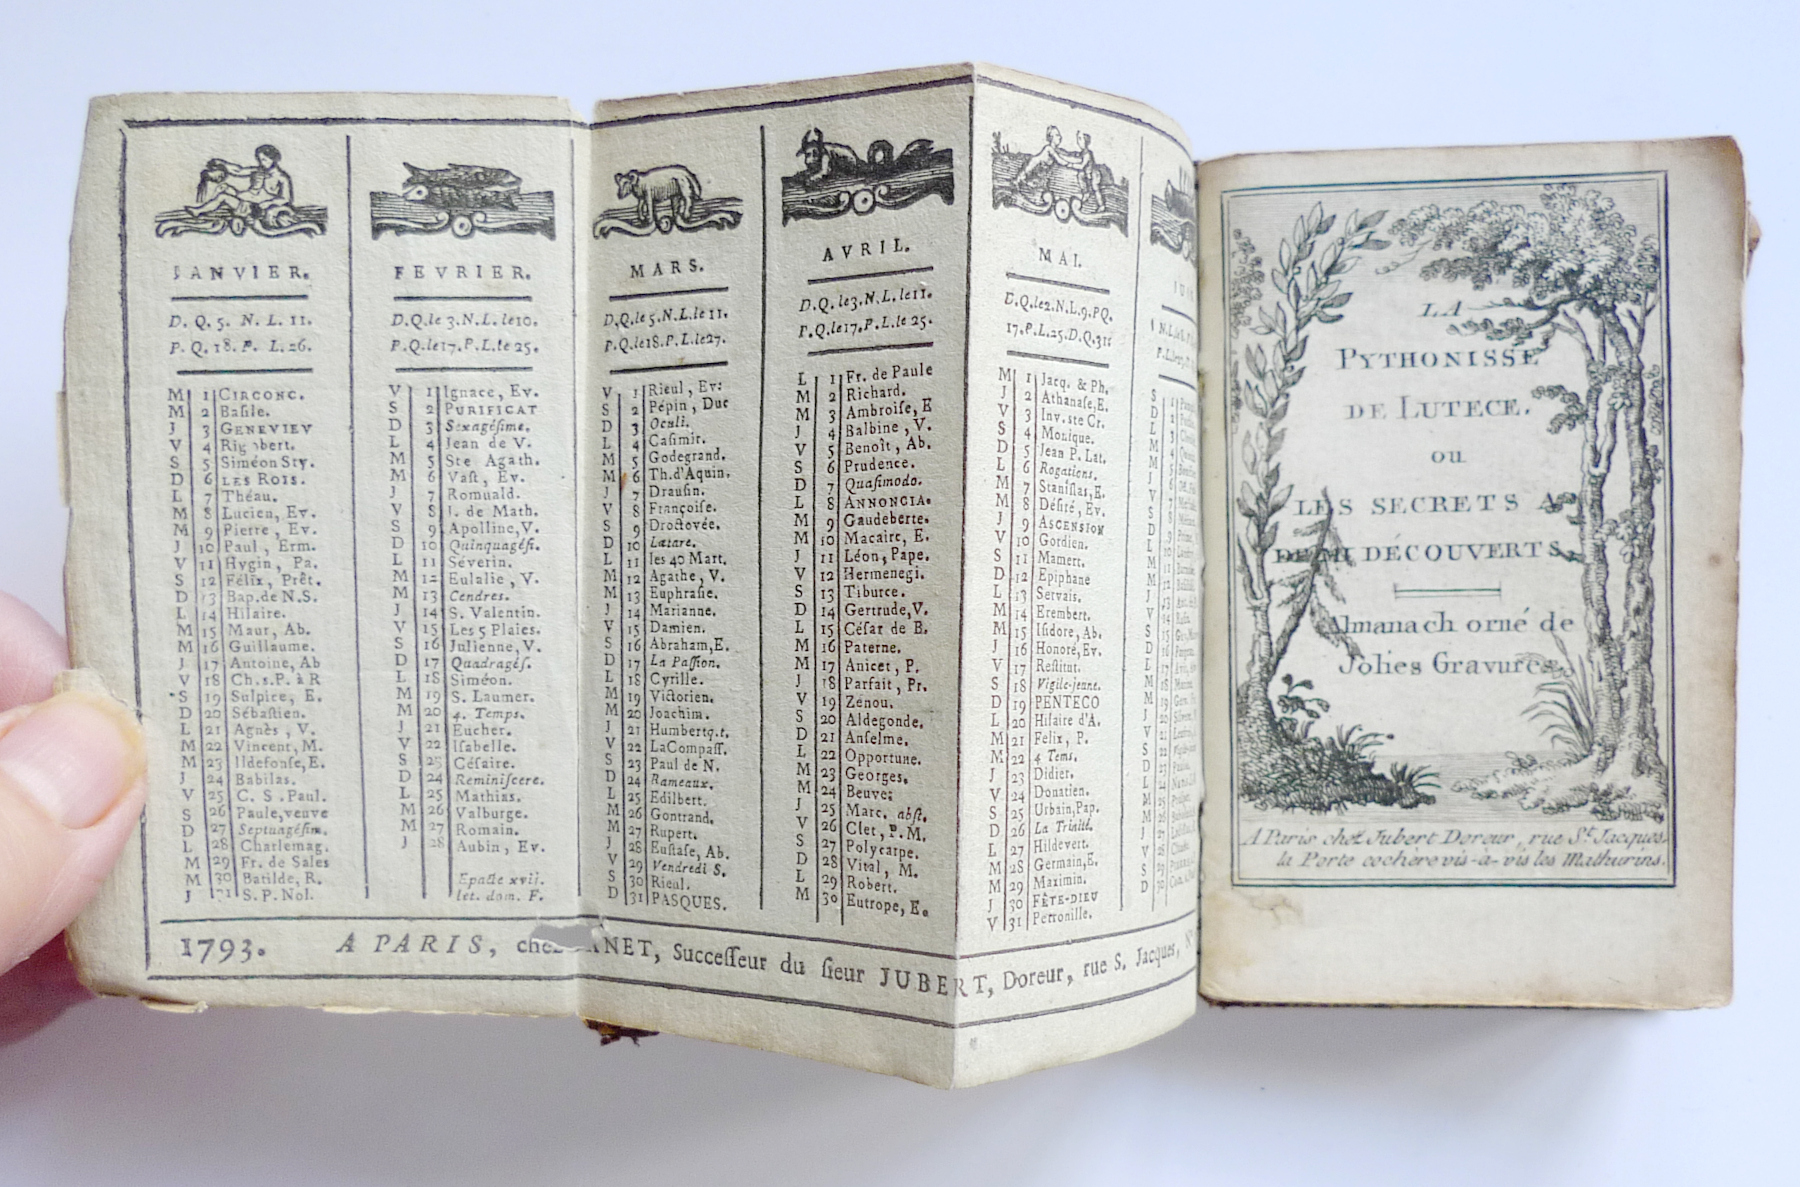 JANVIER.
D. Q. 5. N. L. 11.
P. Q. 18. P. L. 26.
M 1 CIRCONC.
M 2 Basile.
J 3 GENEVIEV
V 4 Rigobert.
S 5 Siméon Sty.
D 6 LES ROIS.
L 7 Théau.
M 8 Lucien, Ev.
M 9 Pierre, Ev.
J 10 Paul, Erm.
V 11 Hygin, Pa.
S 12 Félix, Prêt.
D 13 Bap. de N.S.
L 14 Hilaire.
M 15 Maur, Ab.
M 16 Guillaume.
J 17 Antoine, Ab
V 18 Ch. s. P. à R
S 19 Sulpice, E.
D 20 Sébastien.
L 21 Agnès, V.
M 22 Vincent, M.
M 23 Ildefonse, E.
J 24 Babilas.
V 25 C. S. Paul.
S 26 Paule, veuve
D 27 Septuagésim.
L 28 Charlemag.
M 29 Fr. de Sales
M 30 Batilde, R.
J 31 S. P. Nol.
FEVRIER.
D. Q. le 3. N. L. le 10.
P. Q. le 17. P. L. le 25.
V 1 Ignace, Ev.
S 2 PURIFICAT
D 3 Sexagésime.
L 4 Jean de V.
M 5 Ste Agath.
M 6 Vast, Ev.
J 7 Romuald.
V 8 J. de Math.
S 9 Apolline, V.
D 10 Quinquagési.
L 11 Séverin.
M 12 Eulalie, V.
M 13 Cendres.
J 14 S. Valentin.
V 15 Les 5 Plaies.
S 16 Julienne, V.
D 17 Quadragés.
L 18 Siméon.
M 19 S. Laumer.
M 20 4. Temps.
J 21 Eucher.
V 22 Isabelle.
S 23 Césaire.
D 24 Reminiscere.
L 25 Mathias.
M 26 Valburge.
M 27 Romain.
J 28 Aubin, Ev.
Epacte xvii.
let. dom. F.
MARS.
D. Q. le 5. N. L. le 11.
P. Q. le 18. P. L. le 27.
V 1 Rieul, Ev:
S 2 Pépin, Duc
D 3 Oculi.
L 4 Casimir.
M 5 Godegrand.
M 6 Th. d'Aquin.
J 7 Drausin.
V 8 Françoise.
S 9 Droctovée.
D 10 Lætare.
L 11 les 40 Mart.
M 12 Agathe, V.
M 13 Euphrasie.
J 14 Marianne.
V 15 Damien.
S 16 Abraham, E.
D 17 La Passion.
L 18 Cyrille.
M 19 Victorien.
M 20 Joachim.
J 21 Humbert q.t.
V 22 La Compass.
S 23 Paul de N.
D 24 Rameaux.
L 25 Edilbert.
M 26 Gontrand.
M 27 Rupert.
J 28 Eustase, Ab.
V 29 Vendredi S.
S 30 Rieul.
D 31 PASQUES.
AVRIL.
D. Q. le 3. N. L. le 11.
P. Q. le 17. P. L. le 25.
L 1 Fr. de Paule
M 2 Richard.
M 3 Ambroise, E
J 4 Balbine, V.
V 5 Benoît, Ab.
S 6 Prudence.
D 7 Quasimodo.
L 8 ANNONCIA.
M 9 Gaudeberte.
M 10 Macaire, E.
J 11 Léon, Pape.
V 12 Hermenegi.
S 13 Tiburce.
D 14 Gertrude, V.
L 15 César de B.
M 16 Paterne.
M 17 Anicet, P.
J 18 Parfait, Pr.
V 19 Zénou.
S 20 Aldegonde.
D 21 Anselme.
L 22 Opportune.
M 23 Georges.
M 24 Beuve:
J 25 Marc. abst.
V 26 Clet, P. M.
S 27 Polycarpe.
D 28 Vital, M.
L 29 Robert.
M 30 Eutrope, E.
MAI.
D. Q. le 2. N. L. 9. PQ.
17. P. L. 25. D. Q. 31
M 1 Jacq. & Ph.
J 2 Athanase, E.
V 3 Inv. ste Cr.
S 4 Monique.
D 5 Jean P. Lat.
L 6 Rogations.
M 7 Stanislas, E.
M 8 Désité, Ev.
J 9 ASCENSION
V 10 Gordien.
S 11 Mamert.
D 12 Epiphane
L 13 Servais.
M 14 Erembert.
M 15 Isidore, Ab.
J 16 Honoré, Ev.
V 17 Restitut.
S 18 Vigile-jeune.
D 19 PENTECO
L 20 Hilaire d'A.
M 21 Felix, P.
M 22 4 Tems.
J 23 Didier.
V 24 Donatien.
S 25 Urbain, Pap.
D 26 La Trinité.
L 27 Hildevert.
M 28 Germain, E.
M 29 Maximin.
J 30 FÊTE-DIEU
V 31 Perronille.
1793. A PARIS, chez ANET, Successeur du sieur JUBERT, Doreur, rue S. Jacques,
LA
PYTHONISSE
DE LUTECE.
ou
LES SECRETS A
DEMI DÉCOUVERTS.
Almanach orné de
Jolies Gravures.
A Paris chez Jubert Doreur, rue St. Jacques.
la Porte cochère vis-à-vis les Mathurins.